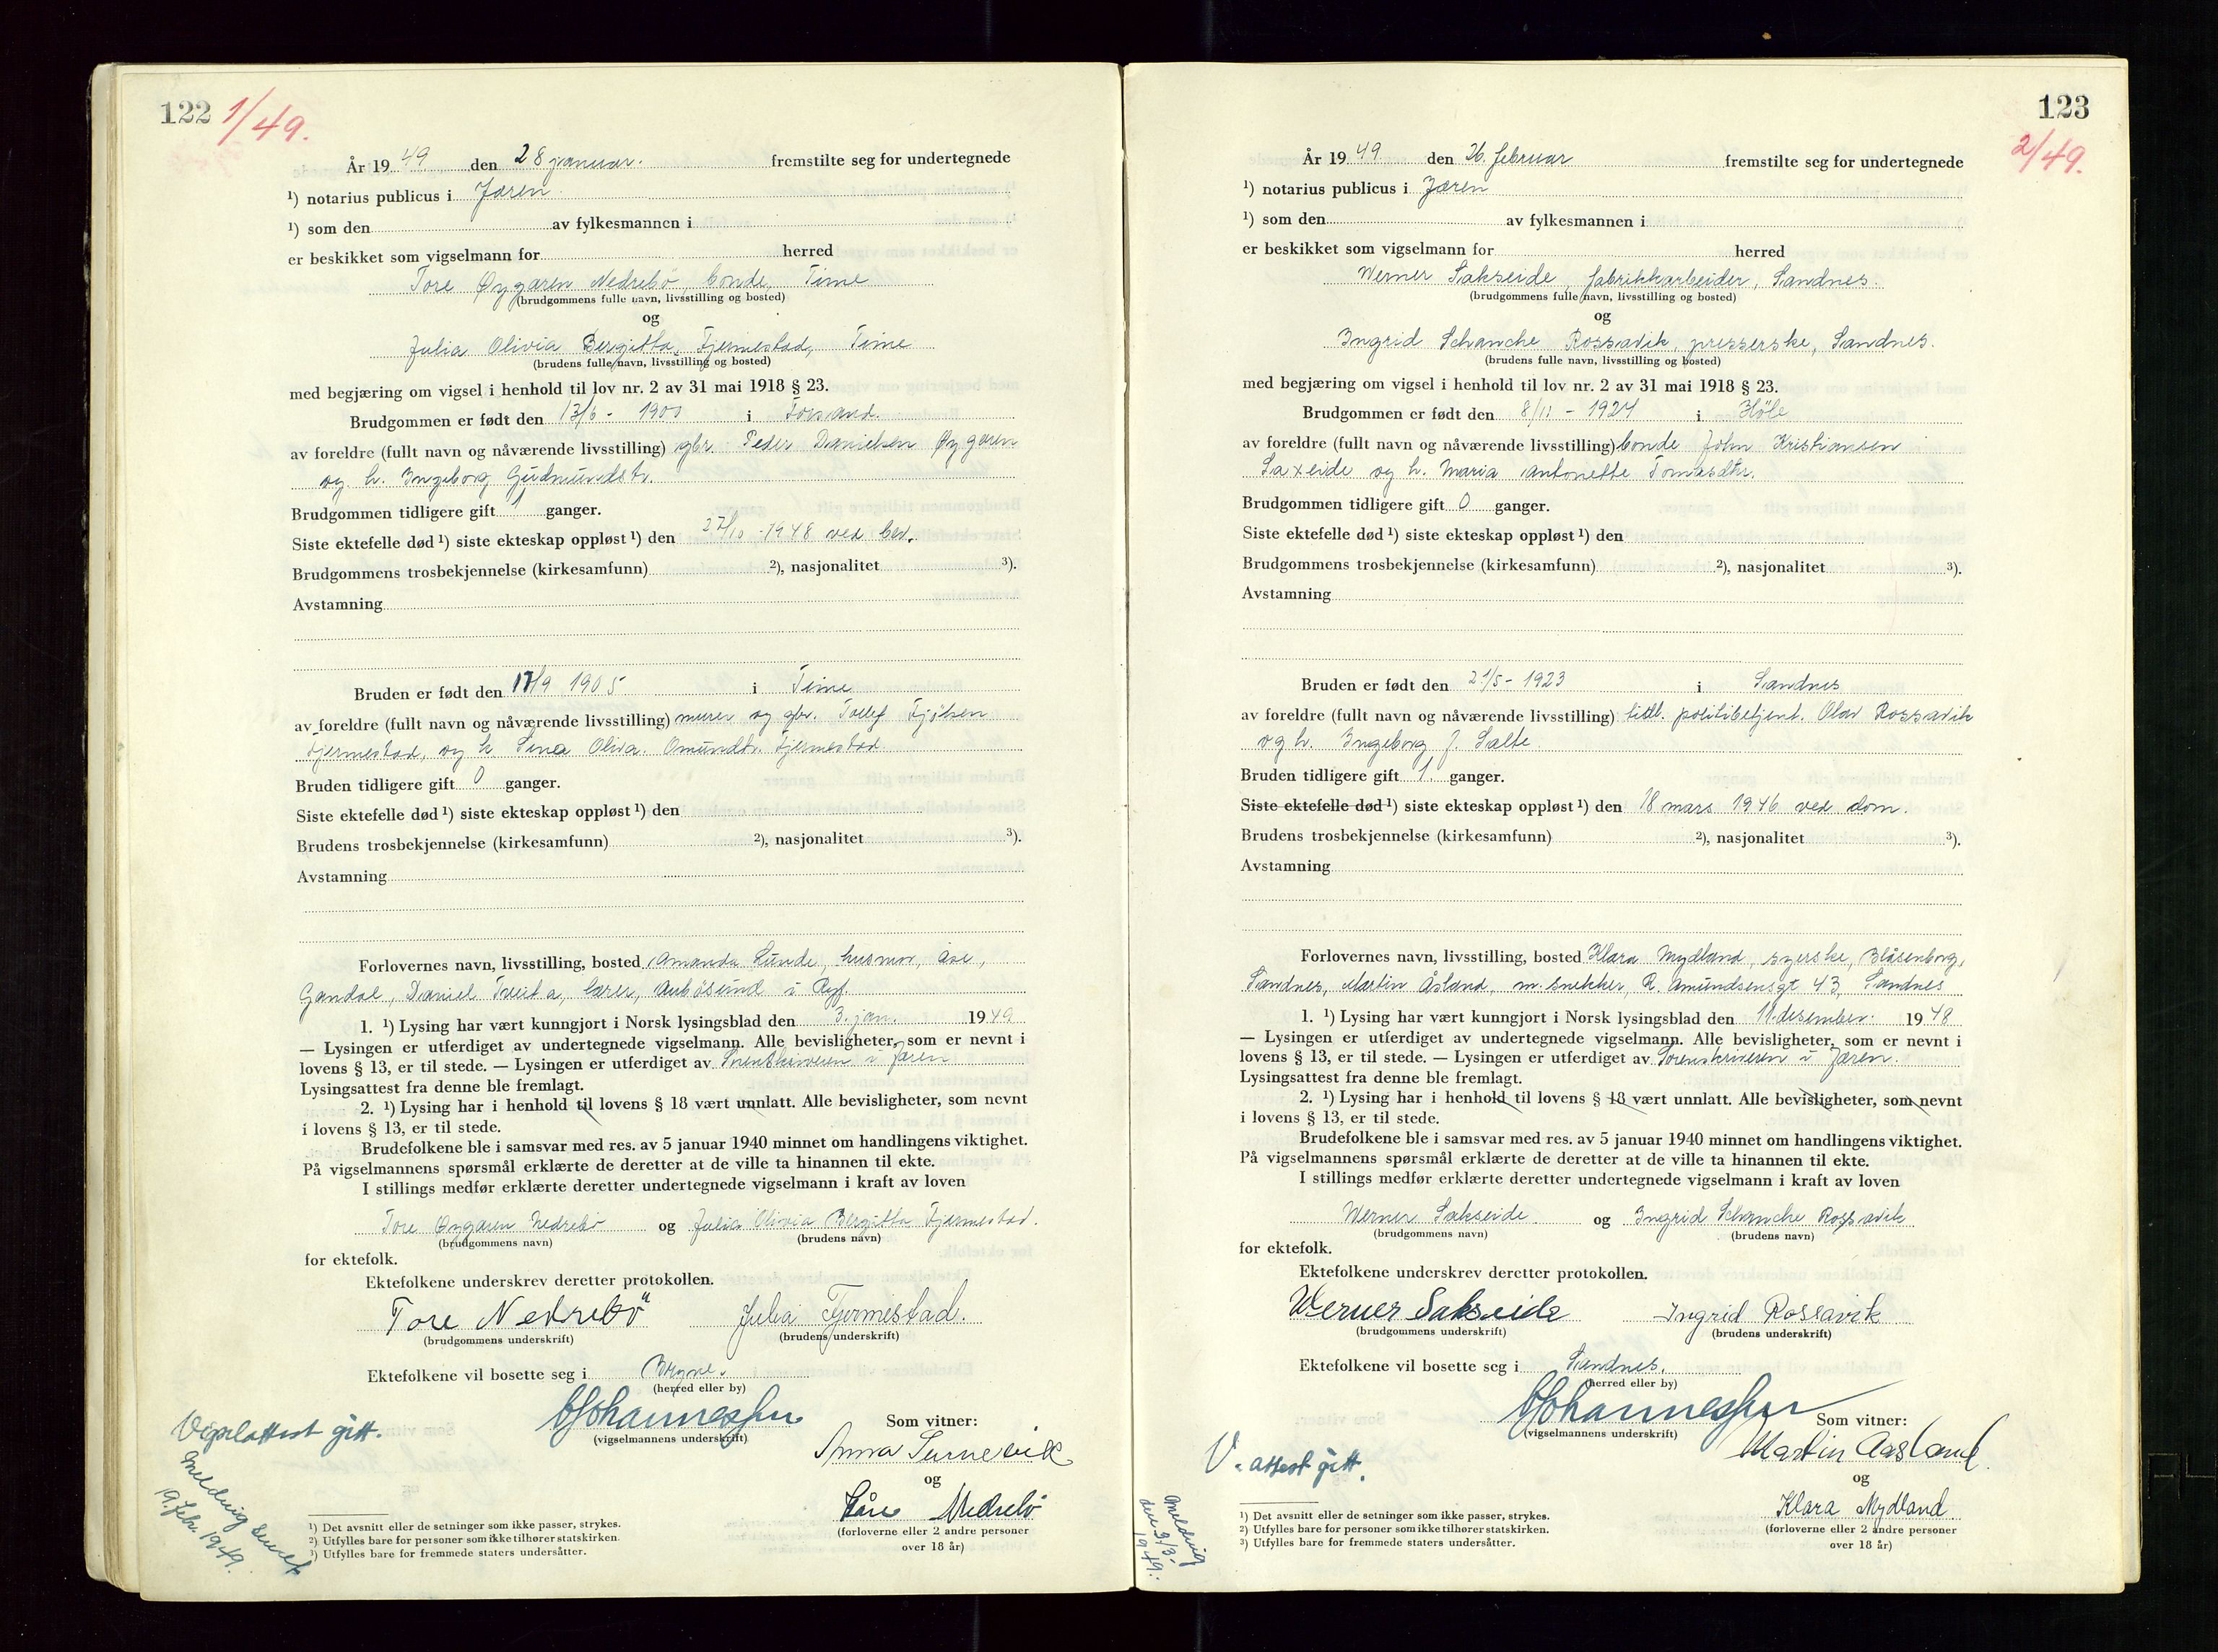 122 1/49.
År 1949 den 28 januar. fremstilte seg for undertegnede
¹) notarius publicus i Jæren
¹) som den av fylkesmannen i
er beskikket som vigselmann for herred
Tore Øygaren Nedrebö, bonde, Time
(brudgommens fulle navn, livsstilling og bosted)
og
Julia Olivia Bergitta Fjermestad, Time
(brudens fulle navn, livsstilling og bosted)
med begjæring om vigsel i henhold til lov nr. 2 av 31 mai 1918 § 23.
Brudgommen er født den 13/6 - 1900 i Forsand.
av foreldre (fullt navn og nåværende livsstilling) gbr. Peder Danielsen Øygaren
og h. Ingeborg Gudmundsdtr.
Brudgommen tidligere gift 1 ganger.
Siste ektefelle død ¹) siste ekteskap oppløst ¹) den 27/10 - 1948 ved bev.
Brudgommens trosbekjennelse (kirkesamfunn) ²), nasjonalitet ³).
Avstamning
Bruden er født den 17/9 1905 i Time
av foreldre (fullt navn og nåværende livsstilling) murer og gbr. Tollef Fjølsen
Fjermestad, og h. Sina Oliva Omundtr. Fjermestad
Bruden tidligere gift 0 ganger.
Siste ektefelle død ¹) siste ekteskap oppløst ¹) den
Brudens trosbekjennelse (kirkesamfunn) ²), nasjonalitet ³).
Avstamning
Forlovernes navn, livsstilling, bosted Amanda Lunde, husmor, Åse,
Gandal, Daniel Tveita, lærer, Aubösund i Ryf
1. ¹) Lysing har vært kunngjort i Norsk lysingsblad den 3. jan. 1949
— Lysingen er utferdiget av undertegnede vigselmann. Alle bevisligheter, som er nevnt i
lovens § 13, er til stede. — Lysingen er utferdiget av Sorenskriveren i Jæren
Lysingsattest fra denne ble fremlagt.
2. ¹) Lysing har i henhold til lovens § 18 vært unnlatt. Alle bevisligheter, som nevnt
i lovens § 13, er til stede.
Brudefolkene ble i samsvar med res. av 5 januar 1940 minnet om handlingens viktighet.
På vigselmannens spørsmål erklærte de deretter at de ville ta hinannen til ekte.
I stillings medfør erklærte deretter undertegnede vigselmann i kraft av loven
Tore Øygaren Nedrebö og Julia Olivia Bergitta Fjermestad.
(brudgommens navn) (brudens navn)
for ektefolk.
Ektefolkene underskrev deretter protokollen.
Tore Nedrebö Julia Fjermestad.
(brudgommens underskrift) (brudens underskrift)
Ektefolkene vil bosette seg i Bryne.
(herred eller by)
Vigselattest gitt.
Som vitner:
(vigselmannens underskrift)
Anna Surnevik
og
Kåre Nedrebö
(forloverne eller 2 andre personer
over 18 år)
Melding sendt
19. febr. 1949.
¹) Det avsnitt eller de setninger som ikke passer, strykes.
²) Utfylles bare for personer som ikke tilhører statskirken.
³) Utfylles bare for fremmede staters undersåtter.
123
2/49.
År 1949 den 26. februar fremstilte seg for undertegnede
¹) notarius publicus i Jæren
¹) som den av fylkesmannen i
er beskikket som vigselmann for herred
Werner Sakseide, fabrikkarbeider, Sandnes.
(brudgommens fulle navn, livsstilling og bosted)
og
Ingrid Schanche Rossavik, presserske, Sandnes.
(brudens fulle navn, livsstilling og bosted)
med begjæring om vigsel i henhold til lov nr. 2 av 31 mai 1918 § 23.
Brudgommen er født den 8/11 - 1924 i Høle
av foreldre (fullt navn og nåværende livsstilling) bonde John Kristiansen
Saxeide og h. Maria Antonette Tomasdtr.
Brudgommen tidligere gift 0 ganger.
Siste ektefelle død ¹) siste ekteskap oppløst ¹) den
Brudgommens trosbekjennelse (kirkesamfunn) ²), nasjonalitet ³).
Avstamning
Bruden er født den 21/5 - 1923 i Sandnes
av foreldre (fullt navn og nåværende livsstilling) tidl. politibetjent. Olav Rossavik
og h. Ingeborg J. Salte
Bruden tidligere gift 1. ganger.
Siste ektefelle død ¹) siste ekteskap oppløst ¹) den 18 mars 1946 ved dom.
Brudens trosbekjennelse (kirkesamfunn) ²), nasjonalitet ³).
Avstamning
Forlovernes navn, livsstilling, bosted Klara Mydland, syerske, Blåsenborg,
Sandnes, Martin Åsland, m. snekker, R. Amundsensgt 43, Sandnes
1. ¹) Lysing har vært kunngjort i Norsk lysingsblad den 11. desember. 1948
— Lysingen er utferdiget av undertegnede vigselmann. Alle bevisligheter, som er nevnt i
lovens § 13, er til stede. — Lysingen er utferdiget av Sorenskriveren i Jæren.
Lysingsattest fra denne ble fremlagt.
2. ¹) Lysing har i henhold til lovens § 18 vært unnlatt. Alle bevisligheter, som nevnt
i lovens § 13, er til stede.
Brudefolkene ble i samsvar med res. av 5 januar 1940 minnet om handlingens viktighet.
På vigselmannens spørsmål erklærte de deretter at de ville ta hinannen til ekte.
I stillings medfør erklærte deretter undertegnede vigselmann i kraft av loven
Werner Sakseide. og Ingrid Schanche Rossavik
(brudgommens navn) (brudens navn)
for ektefolk.
Ektefolkene underskrev deretter protokollen.
Werner Sakseide Ingrid Rossavik
(brudgommens underskrift) (brudens underskrift)
Ektefolkene vil bosette seg i Sandnes.
(herred eller by)
Som vitner:
(vigselmannens underskrift)
Martin Aasland
V. attest gitt.
og
Klara Mydland
(forloverne eller 2 andre personer
over 18 år)
Melding
den 3/3-
1949.
¹) Det avsnitt eller de setninger som ikke passer, strykes.
²) Utfylles bare for personer som ikke tilhører statskirken.
³) Utfylles bare for fremmede staters undersåtter.